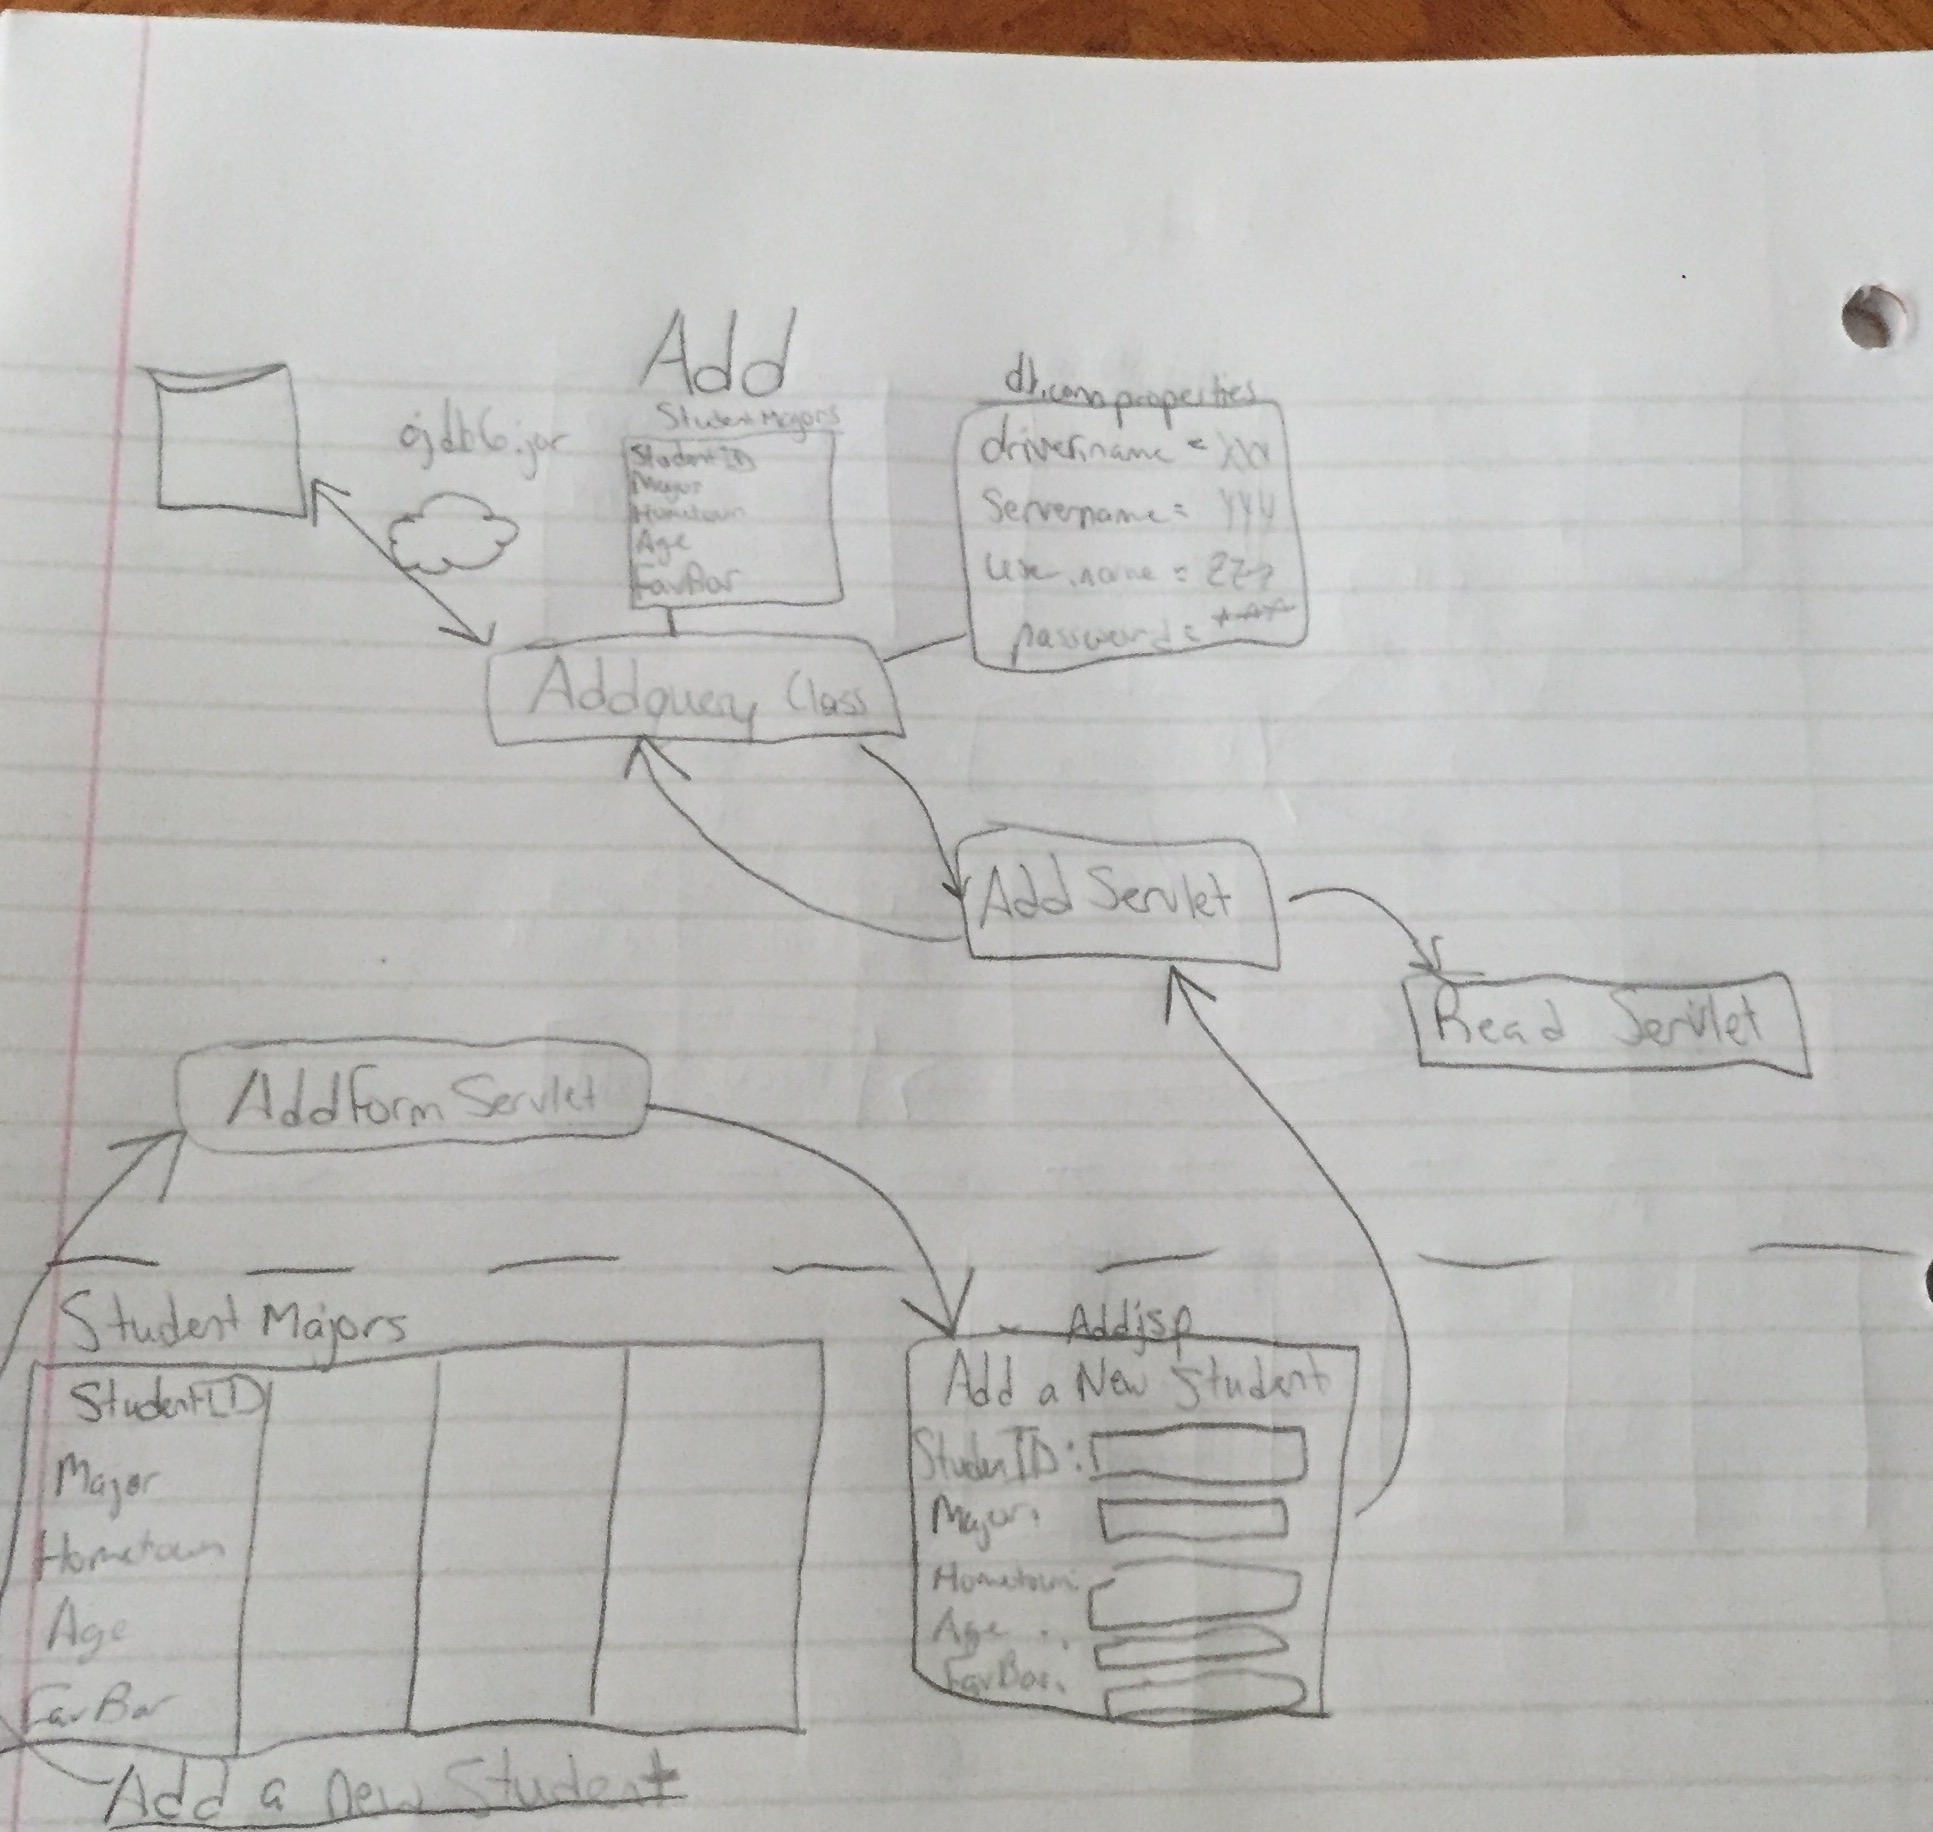 Add
ojdb6.jar
Student Majors
StudentID
Major
Hometown
Age
FavBar
db.conn.properties
driver.name = XXX
Server.name = YYY
user.name = ZZZ
password = ****
Addquery Class
Add Servlet
Read Servlet
AddForm Servlet
Student Majors
StudentID
Major
Hometown
Age
FavBar
Add a new Student
Addjsp
Add a New Student
StudenID:
Major:
Hometown:
Age :
FavBar: